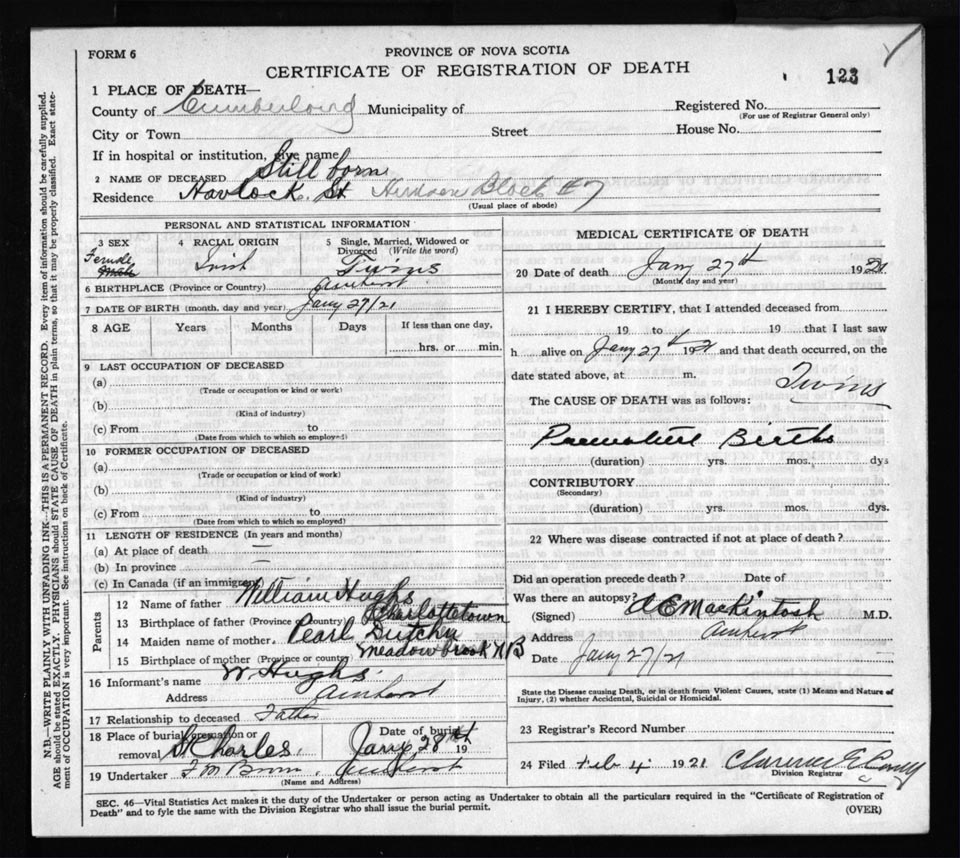 FORM 6
PROVINCE OF NOVA SCOTIA
CERTIFICATE OF REGISTRATION OF DEATH
123
1 PLACE OF DEATH—
County of Cumberland Municipality of Registered No.
(For use of Registrar General only)
City or Town Street House No.
If in hospital or institution, give name
2 NAME OF DECEASED Still born
Residence Havlock St Block #7
(Usual place of abode)
PERSONAL AND STATISTICAL INFORMATION
3 SEX 4 RACIAL ORIGIN 5 Single, Married, Widowed or Divorced (Write the word)
Female Irish Twins
6 BIRTHPLACE (Province or Country) Amherst
7 DATE OF BIRTH (month, day and year) Jany 27/21
8 AGE Years Months Days If less than one day,
hrs. or min.
9 LAST OCCUPATION OF DECEASED
(a)
(Trade or occupation or kind of work)
(b)
(Kind of industry)
(c) From to
(Date from which to which so employed)
10 FORMER OCCUPATION OF DECEASED
(a)
(Trade or occupation or kind of work)
(b)
(Kind of industry)
(c) From to
(Date from which to which so employed)
11 LENGTH OF RESIDENCE (In years and months)
(a) At place of death —
(b) In province —
(c) In Canada (if an immigrant)
Parents
12 Name of father William Hughs
13 Birthplace of father (Province or Country) Charlottetown
14 Maiden name of mother Pearl
15 Birthplace of mother (Province or country) Meadowbrook NB
16 Informant's name W. Hughs
Address Amherst
17 Relationship to deceased Father
18 Place of burial, cremation or removal St Charles. Date of burial Jany 28th 19
19 Undertaker Amherst
(Name and Address)
MEDICAL CERTIFICATE OF DEATH
20 Date of death Jany 27th 1921
(Month, day and year)
21 I HEREBY CERTIFY, that I attended deceased from
19 to 19 that I last saw
h alive on Jany 27th 1921 and that death occurred, on the
date stated above, at m.
Twins
The CAUSE OF DEATH was as follows:
Premature Births
(duration) yrs. mos. dys
CONTRIBUTORY
(Secondary)
(duration) yrs. mos. dys.
22 Where was disease contracted if not at place of death?
Did an operation precede death? Date of
Was there an autopsy?
(Signed) A E Mackintosh M.D.
Address Amherst
Date Jany 27/21
State the Disease causing Death, or in death from Violent Causes, state (1) Means and Nature of
Injury, (2) whether Accidental, Suicidal or Homicidal.
23 Registrar's Record Number
24 Filed Feb 4 1921 Clarence E
Division Registrar
SEC. 46—Vital Statistics Act makes it the duty of the Undertaker or person acting as Undertaker to obtain all the particulars required in the "Certificate of Registration of
Death" and to fyle the same with the Division Registrar who shall issue the burial permit.
(OVER)
N.B.—WRITE PLAINLY WITH UNFADING INK—THIS IS A PERMANENT RECORD. Every item of information should be carefully supplied.
AGE should be stated EXACTLY. PHYSICIANS should STATE CAUSE OF DEATH in plain terms, so that it may be properly classified. Exact state-
ment of OCCUPATION is very important. See instructions on back of Certificate.